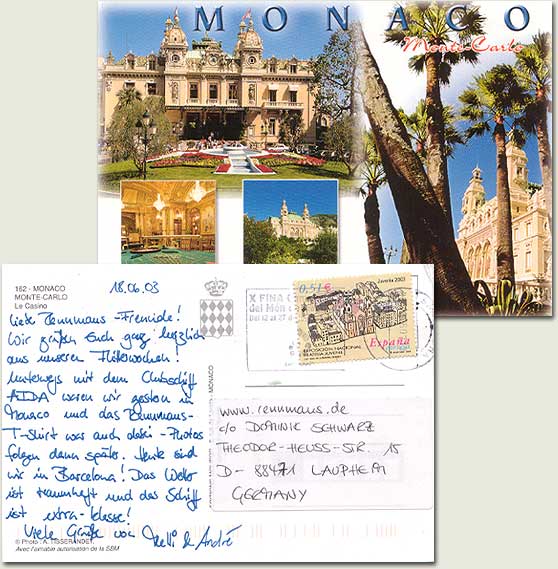 MONACO
Monte-Carlo
162 - MONACO
MONTE-CARLO
Le Casino
18.06.03
Liebe Rennmaus-Freunde!
Wir grüßen Euch ganz herzlich
aus unseren Flitterwochen!
Unterwegs mit dem Clubschiff
AIDA waren wir gestern in
Monaco und das Rennmaus-
T-Shirt war auch dabei - Photos
folgen dann später. Heute sind
wir in Barcelona! Das Wetter
ist traumhaft und das Schiff
ist extra-klasse!
Viele Grüße von Melli & André
© Photo : A. TISSERANDET
Avec l'aimable autorisation de la SBM
MONACO
X FINA
del Món
0,51€
Juvenia 2003
España
EXPOSICIÓN NACIONAL
FILATELIA JUVENIL
www.rennmaus.de
c/o DOMINIK SCHWARZ
THEODOR-HEUSS-STR. 15
D- 88471 LAUPHEIM
GERMANY